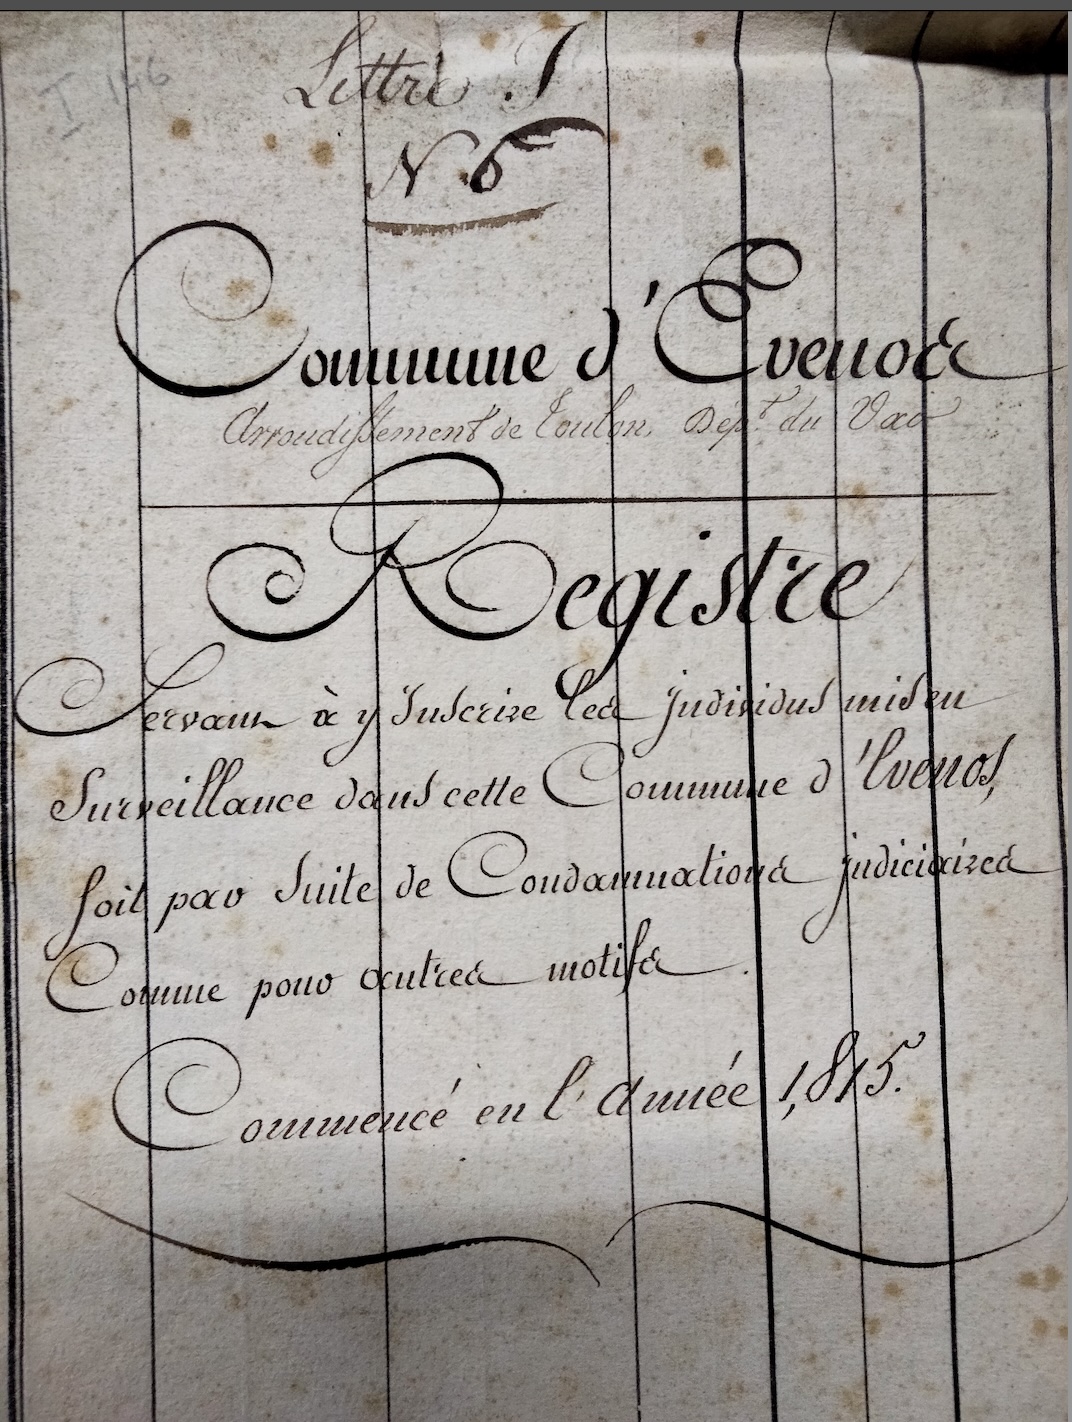 I 146
Lettre J
N 6
Commune d'Evenos
Arrondissement de Toulon, Dépt. du Var
Registre
Servant à y Inscrire les individus mis en
Surveillance dans cette Commune d'Evenos,
soit par Suite de Condamnations judiciaires
Comme pour autres motifs.
Commencé en l'Année 1,815.